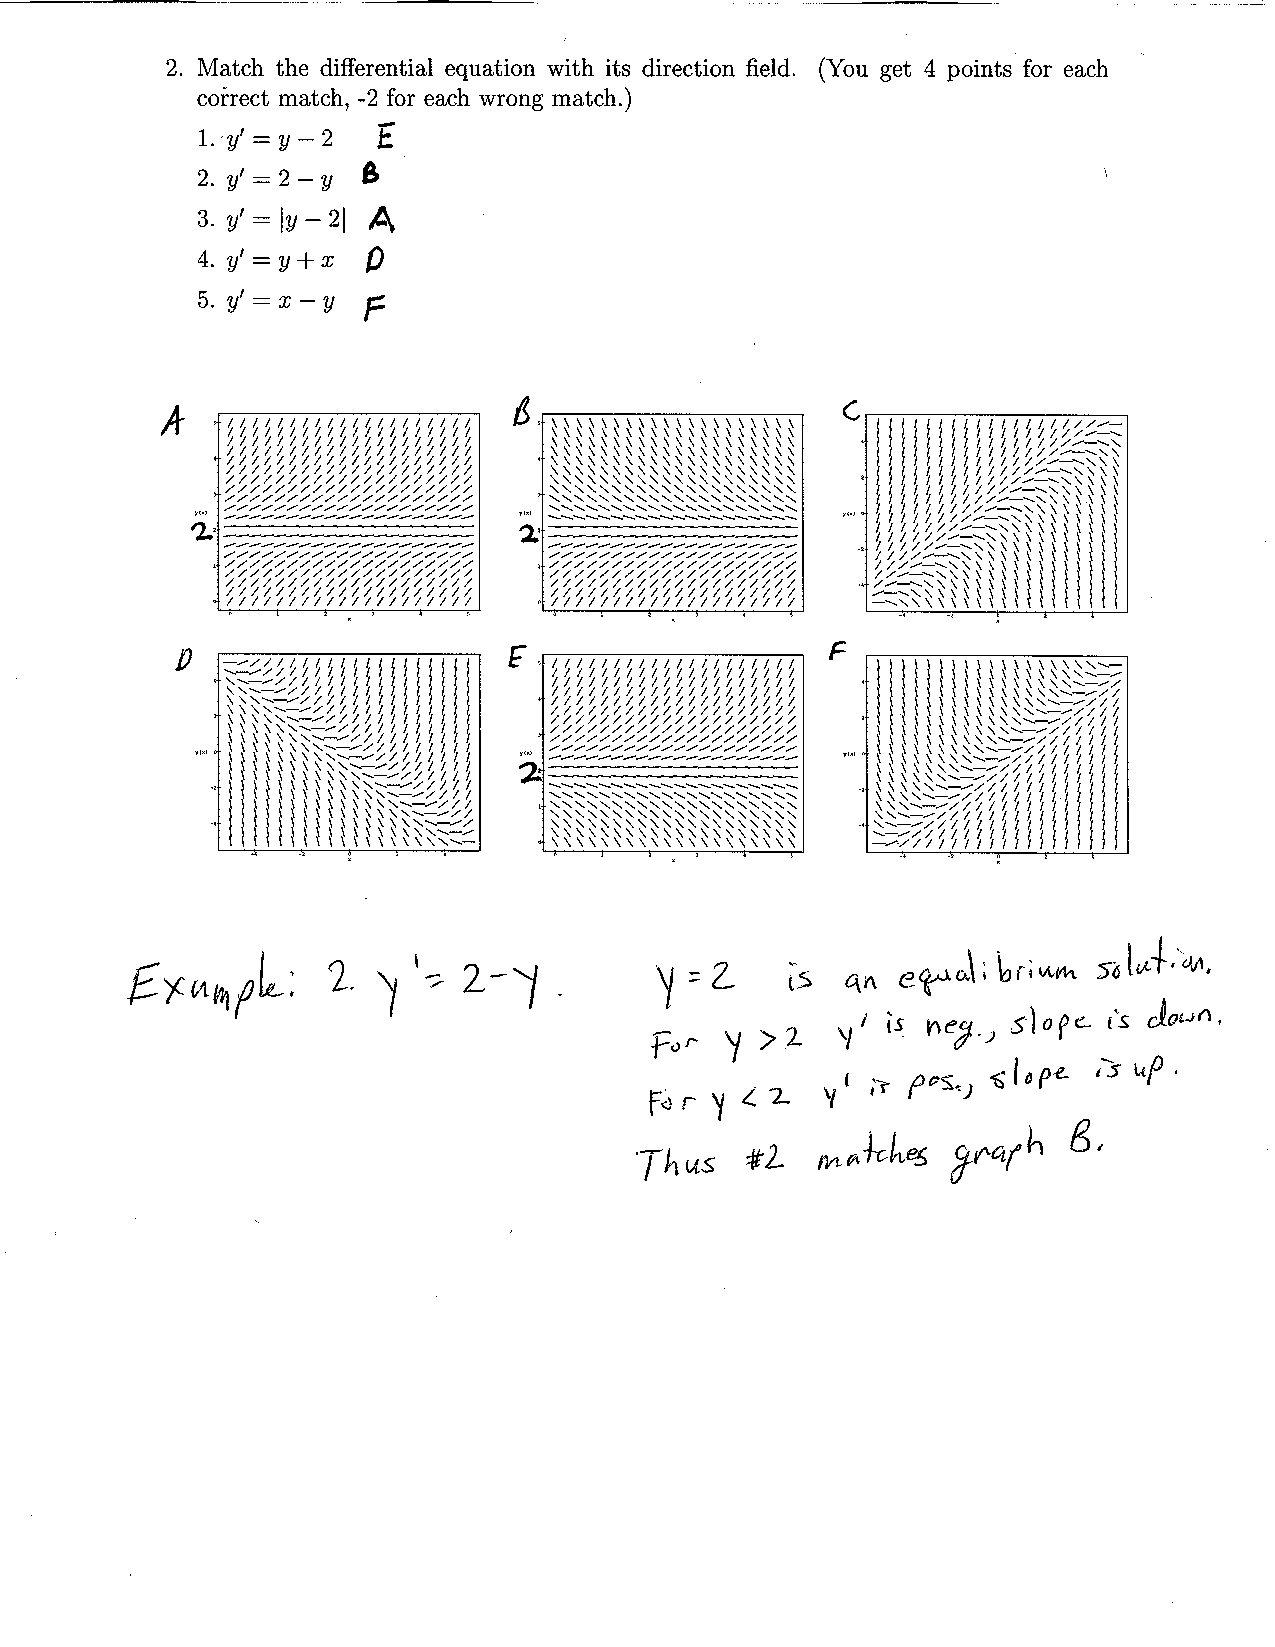 2. Match the differential equation with its direction field. (You get 4 points for each
correct match, -2 for each wrong match.)
1. y′ = y − 2 E
2. y′ = 2 − y B
3. y′ = |y − 2| A
4. y′ = y + x D
5. y′ = x − y F
A B C
2 2
D E F
2
Example: 2. y' = 2-y. y=2 is an equalibrium solution.
For y >2 y' is neg., slope is down.
For y < 2 y' is pos., slope is up.
Thus #2 matches graph B.